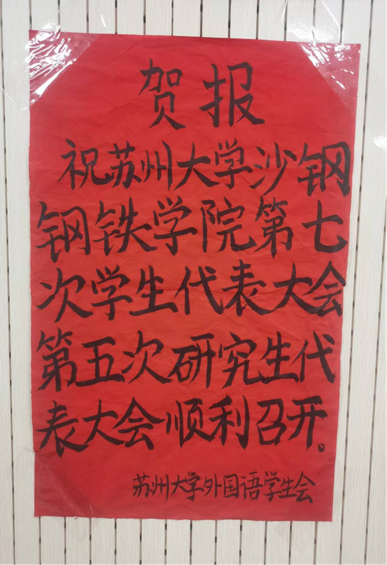 贺报
祝苏州大学沙钢
钢铁学院第七
次学生代表大会
第五次研究生代
表大会顺利召开。
苏州大学外国语学生会